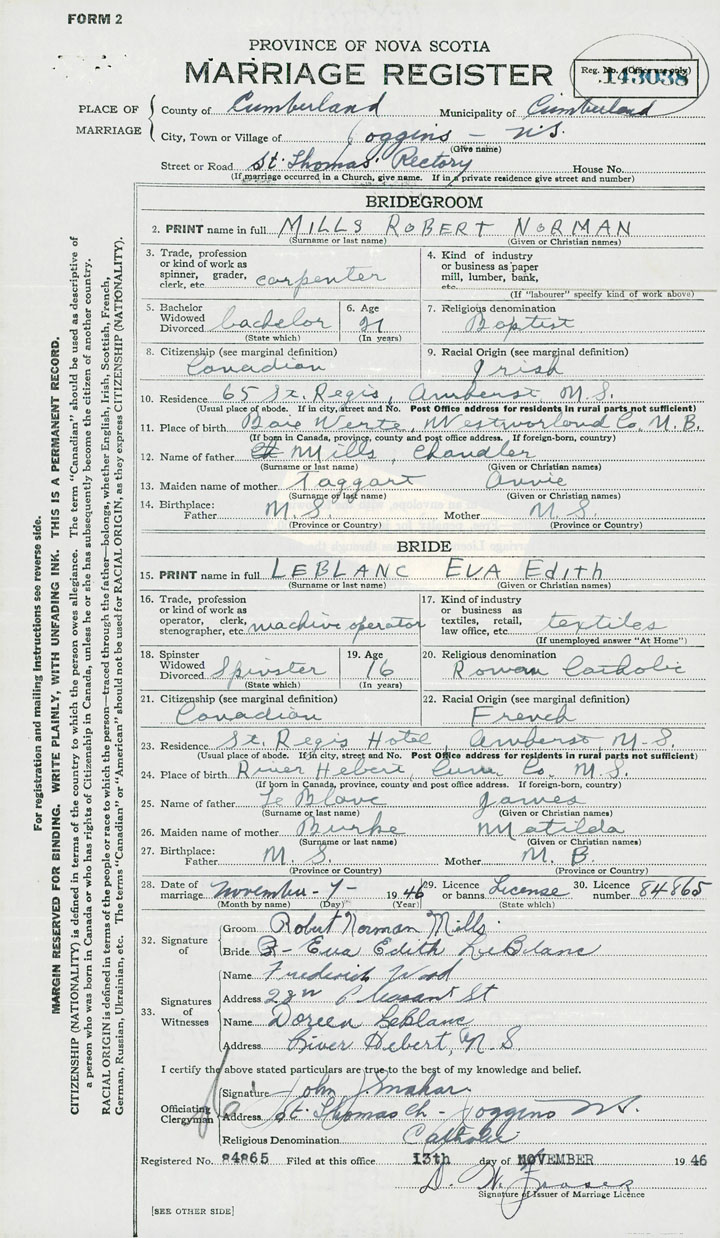 FORM 2
PROVINCE OF NOVA SCOTIA
MARRIAGE REGISTER
Reg. No. (Office use only)
143038
PLACE OF MARRIAGE
County of Cumberland Municipality of Cumberland
City, Town or Village of Joggins - N.S.
(Give name)
Street or Road St. Thomas' Rectory House No.
(If marriage occurred in a Church, give name. If in a private residence give street and number)
BRIDEGROOM
2. PRINT name in full MILLS ROBERT NORMAN
(Surname or last name) (Given or Christian names)
3. Trade, profession or kind of work as spinner, grader, clerk, etc. carpenter
4. Kind of industry or business as paper mill, lumber, bank, etc.
(If "labourer" specify kind of work above)
5. Bachelor Widowed Divorced bachelor
(State which)
6. Age 21
(In years)
7. Religious denomination Baptist
8. Citizenship (see marginal definition) Canadian
9. Racial Origin (see marginal definition) Irish
10. Residence 65 St. Regis, Amherst, N.S.
(Usual place of abode. If in city, street and No. Post Office address for residents in rural parts not sufficient)
11. Place of birth Baie Verte, Westmorland Co. N.B.
(If born in Canada, province, county and post office address. If foreign-born, country)
12. Name of father Mills, Chandler
(Surname or last name) (Given or Christian names)
13. Maiden name of mother Taggart Annie
(Surname or last name) (Given or Christian names)
14. Birthplace: Father N.S. Mother N.S.
(Province or Country) (Province or Country)
BRIDE
15. PRINT name in full LEBLANC EVA Edith
(Surname or last name) (Given or Christian names)
16. Trade, profession or kind of work as operator, clerk, stenographer, etc. machine operator
17. Kind of industry or business as textiles, retail, law office, etc. textiles
(If unemployed answer "At Home")
18. Spinster Widowed Divorced Spinster
(State which)
19. Age 16
(In years)
20. Religious denomination Roman Catholic
21. Citizenship (see marginal definition) Canadian
22. Racial Origin (see marginal definition) French
23. Residence St. Regis Hotel Amherst, N.S.
(Usual place of abode. If in city, street and No. Post Office address for residents in rural parts not sufficient)
24. Place of birth River Hebert, Cum. Co. N.S.
(If born in Canada, province, county and post office address. If foreign-born, country)
25. Name of father Le Blanc James
(Surname or last name) (Given or Christian names)
26. Maiden name of mother Burke Matilda
(Surname or last name) (Given or Christian names)
27. Birthplace: Father N.S. Mother N.B.
(Province or Country) (Province or Country)
28. Date of marriage November - 7 - 1946
(Month by name) (Day) (Year)
29. Licence or banns License
(State which)
30. Licence number 84865
32. Signature of
Groom Robert Norman Mills
Bride Eva Edith LeBlanc
33. Signatures of Witnesses
Name Frederick Wood
Address Pleasant St
Name Doreen LeBlanc
Address River Hebert, N.S.
I certify the above stated particulars are true to the best of my knowledge and belief.
Officiating Clergyman
Signature John
Address St. Thomas Ch - Joggins N.S.
Religious Denomination Catholic
Registered No. 84865 Filed at this office 13th day of NOVEMBER 1946
D. W. Fraser
Signature of Issuer of Marriage Licence
[SEE OTHER SIDE]
For registration and mailing instructions see reverse side.
MARGIN RESERVED FOR BINDING. WRITE PLAINLY, WITH UNFADING INK. THIS IS A PERMANENT RECORD.
CITIZENSHIP (NATIONALITY) is defined in terms of the country to which the person owes allegiance. The term "Canadian" should be used as descriptive of
a person who was born in Canada or who has rights of Citizenship in Canada, unless he or she has subsequently become the citizen of another country.
RACIAL ORIGIN is defined in terms of the people or race to which the person—traced through the father—belongs, whether English, Irish, Scottish, French,
German, Russian, Ukrainian, etc. The terms "Canadian" or "American" should not be used for RACIAL ORIGIN, as they express CITIZENSHIP (NATIONALITY).